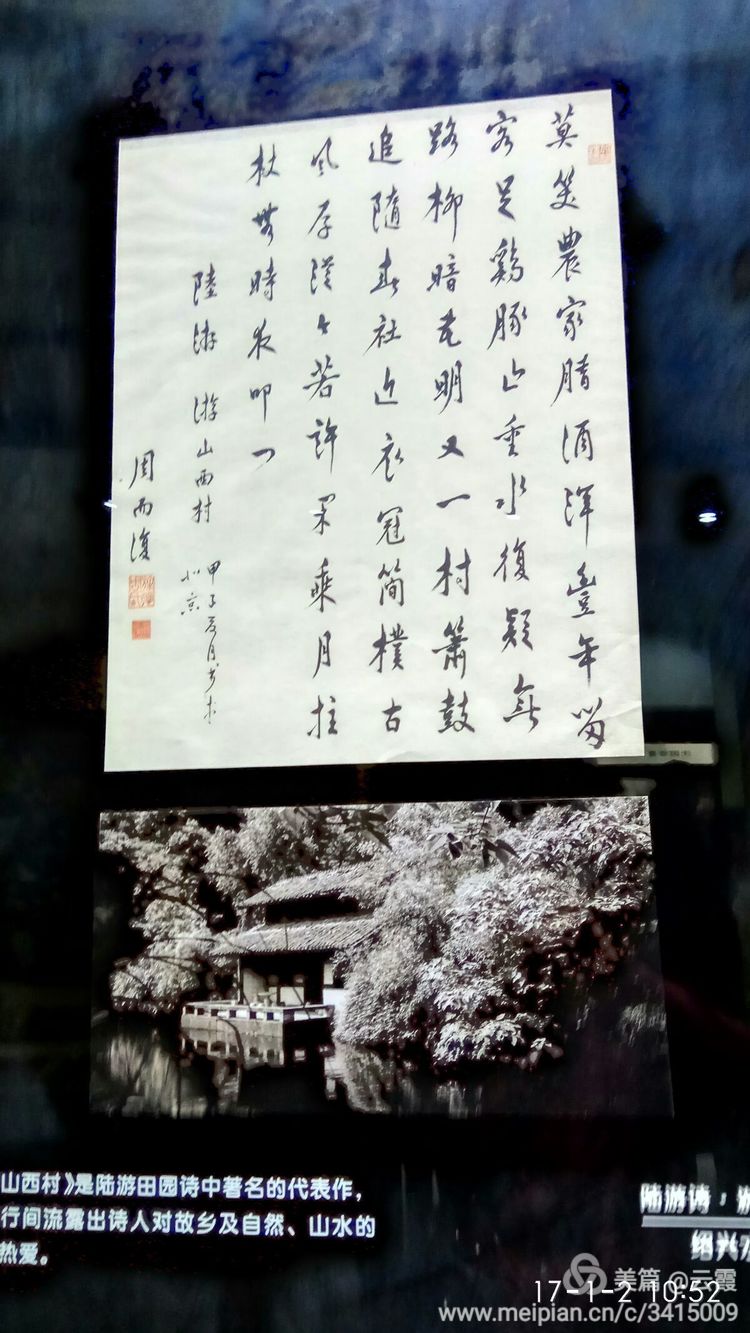 莫笑農家腊酒渾豊年留
客足鷄豚山重水復疑無
路柳暗花明又一村簫鼓
追隨春社近衣冠簡樸古
風存從今若許閑乘月拄
杖無時夜叩門
陸游 游山西村
甲子夏月书于
北京
周而復
山西村》是陆游田园诗中著名的代表作，
行间流露出诗人对故乡及自然、山水的
热爱。
陆游诗·游
绍兴
美篇 @云霞
17-1-2 10:52
www.meipian.cn/c/3415009